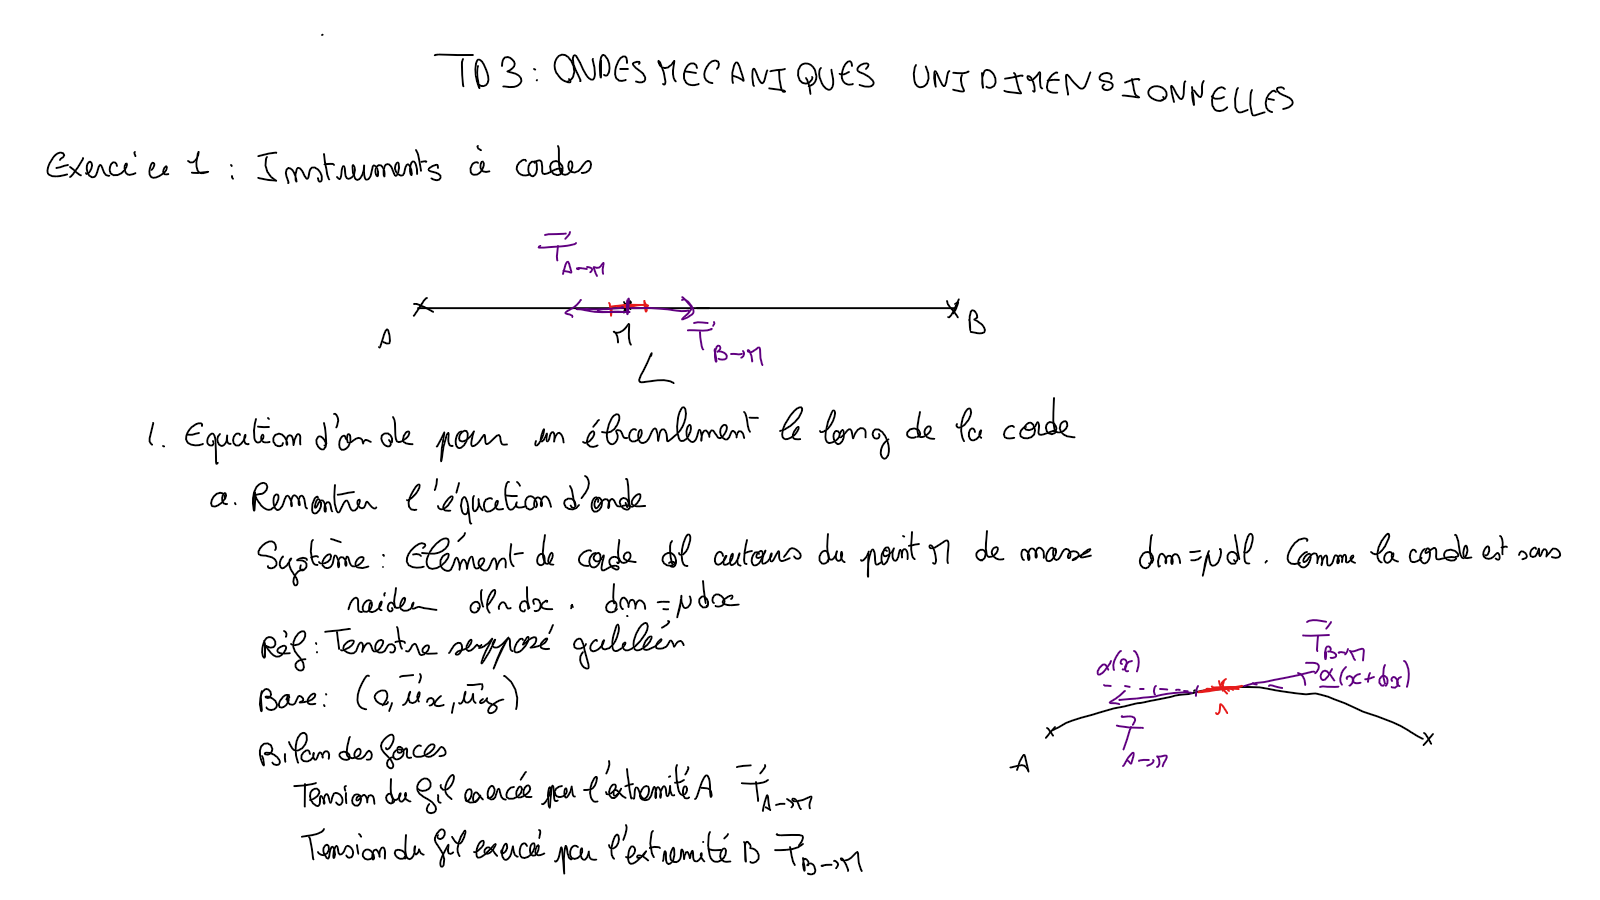 TD3 : ONDES MECANIQUES UNIDIMENSIONNELLES
Exercice 1 : Instruments à cordes
T⃗ A→M
A M B
T⃗ B→M
L
1. Equation d'onde pour un ébranlement le long de la corde
a. Remontrer l'équation d'onde
Système : Elément de corde dl autours du point M de masse dm = μdl. Comme la corde est sans
raideur dl~dx. dm = μdx
Réf : Terrestre supposé galiléen
Base : (O, u⃗x, u⃗y)
Bilan des forces
Tension du fil exercée par l'extremité A T⃗ A→M
Tension du fil exercée par l'extremité B T⃗ B→M
T⃗ B→M
α(x) α(x+dx)
M
A
T⃗ A→M